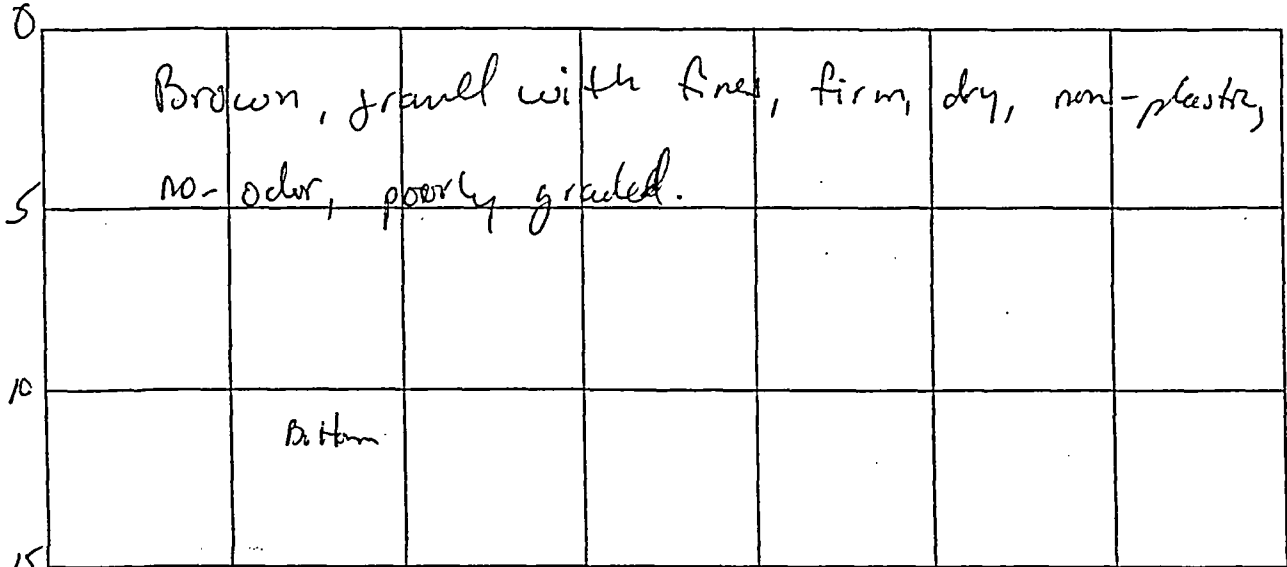 0
Brown, gravel with fines, firm, dry, non-plastic,
no-odor, poorly graded.
5
10
Bottom
15